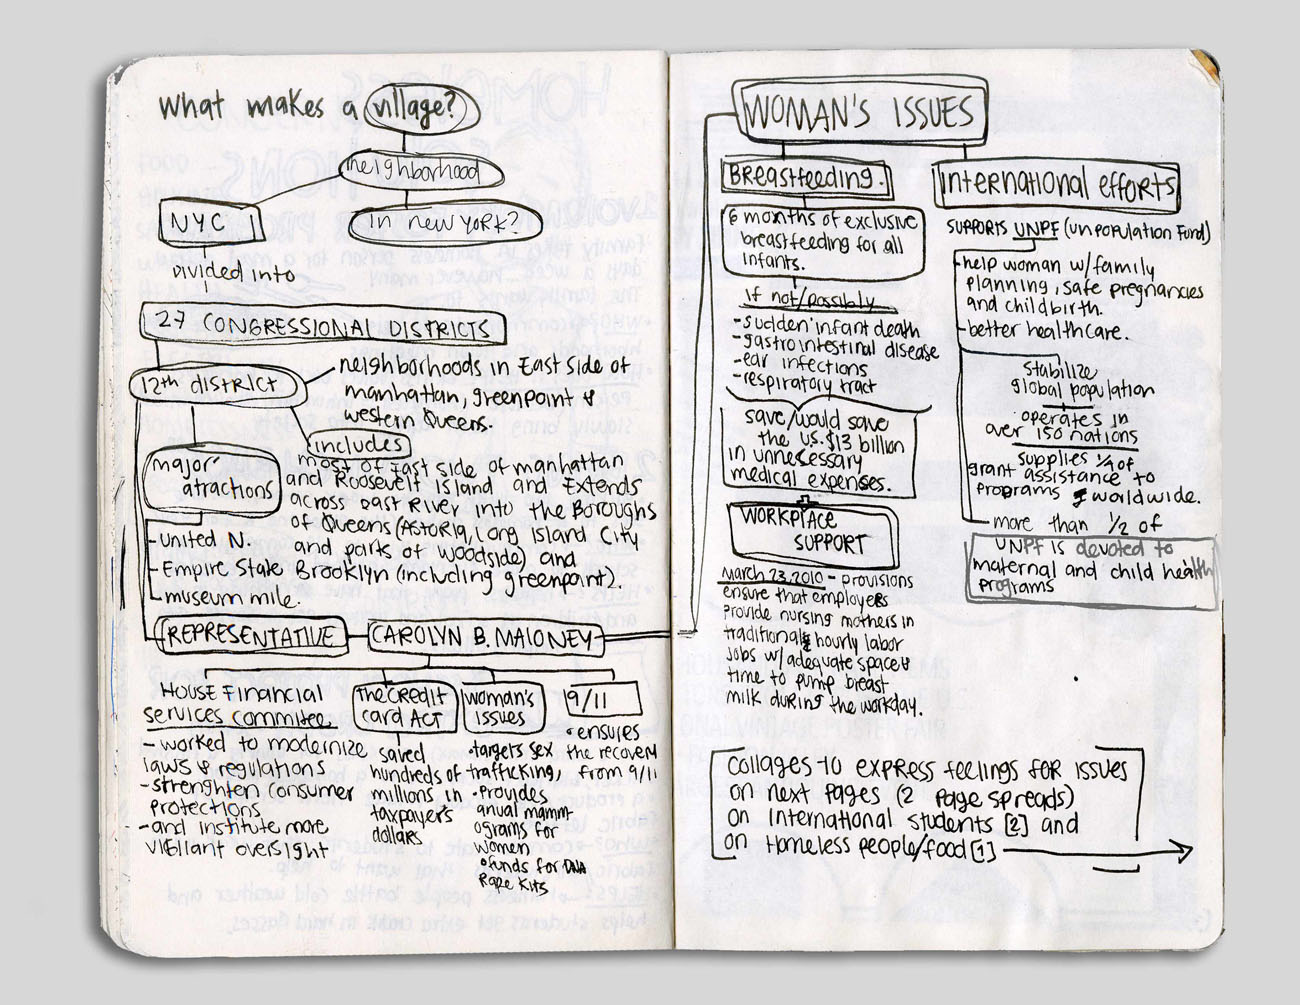 what makes a village?
neighborhood
NYC
in new YORK?
divided into
27 CONGRESSIONAL DISTRICTS
12th district
neighborhoods in East side of
manhattan, greenpoint &
western Queens.
includes
most of East side of manhattan
and Roosevelt Island and Extends
across East River into the Boroughs
of Queens (ASTORIA, Long Island City
and parts of woodside) and
Brooklyn (including greenpoint).
major
atractions
- united N.
- Empire State
- museum mile.
REPRESENTATIVE
CAROLYN B. MALONEY
HOUSE Financial
services commitee.
- worked to modernize
laws & regulations
- strenghten consumer
protections
- and institute more
vigilant oversight
The Credit
card ACT
saved
hundreds of
millions in
taxpayer's
dollars
woman's
issues
• targets sex
trafficking,
• Provides
anual mamm
ograms for
women
• funds for DNA
Rape Kits
9/11
• ensures
the recovery
from 9/11
WOMAN'S ISSUES
Breastfeeding.
6 months of exclusive
breastfeeding for all
infants.
If not/possibly
- sudden infant death
- gastrointestinal disease
- ear infections
- respiratory tract
save/would save
the US. $13 billion
in unnecessary
medical expenses.
+
WORKPLACE
SUPPORT
March 23, 2010 - provisions
ensure that employers
provide nursing mothers in
traditional hourly labor
jobs w/adequate space &
time to pump breast
milk during the workday.
International efforts
SUPPORTS UNPF (un population Fund)
- help woman w/family
planning, safe pregnancies
and childbirth.
- better healthcare.
stabilize
global population
operates in
over 150 nations
supplies 1/4 of
grant assistance to
programs worldwide.
- more than 1/2 of
UNPF is devoted to
maternal and child health
programs
collages to express feelings for issues
on next pages (2 page spreads)
on International students [2] and
on Homeless people/food [1]